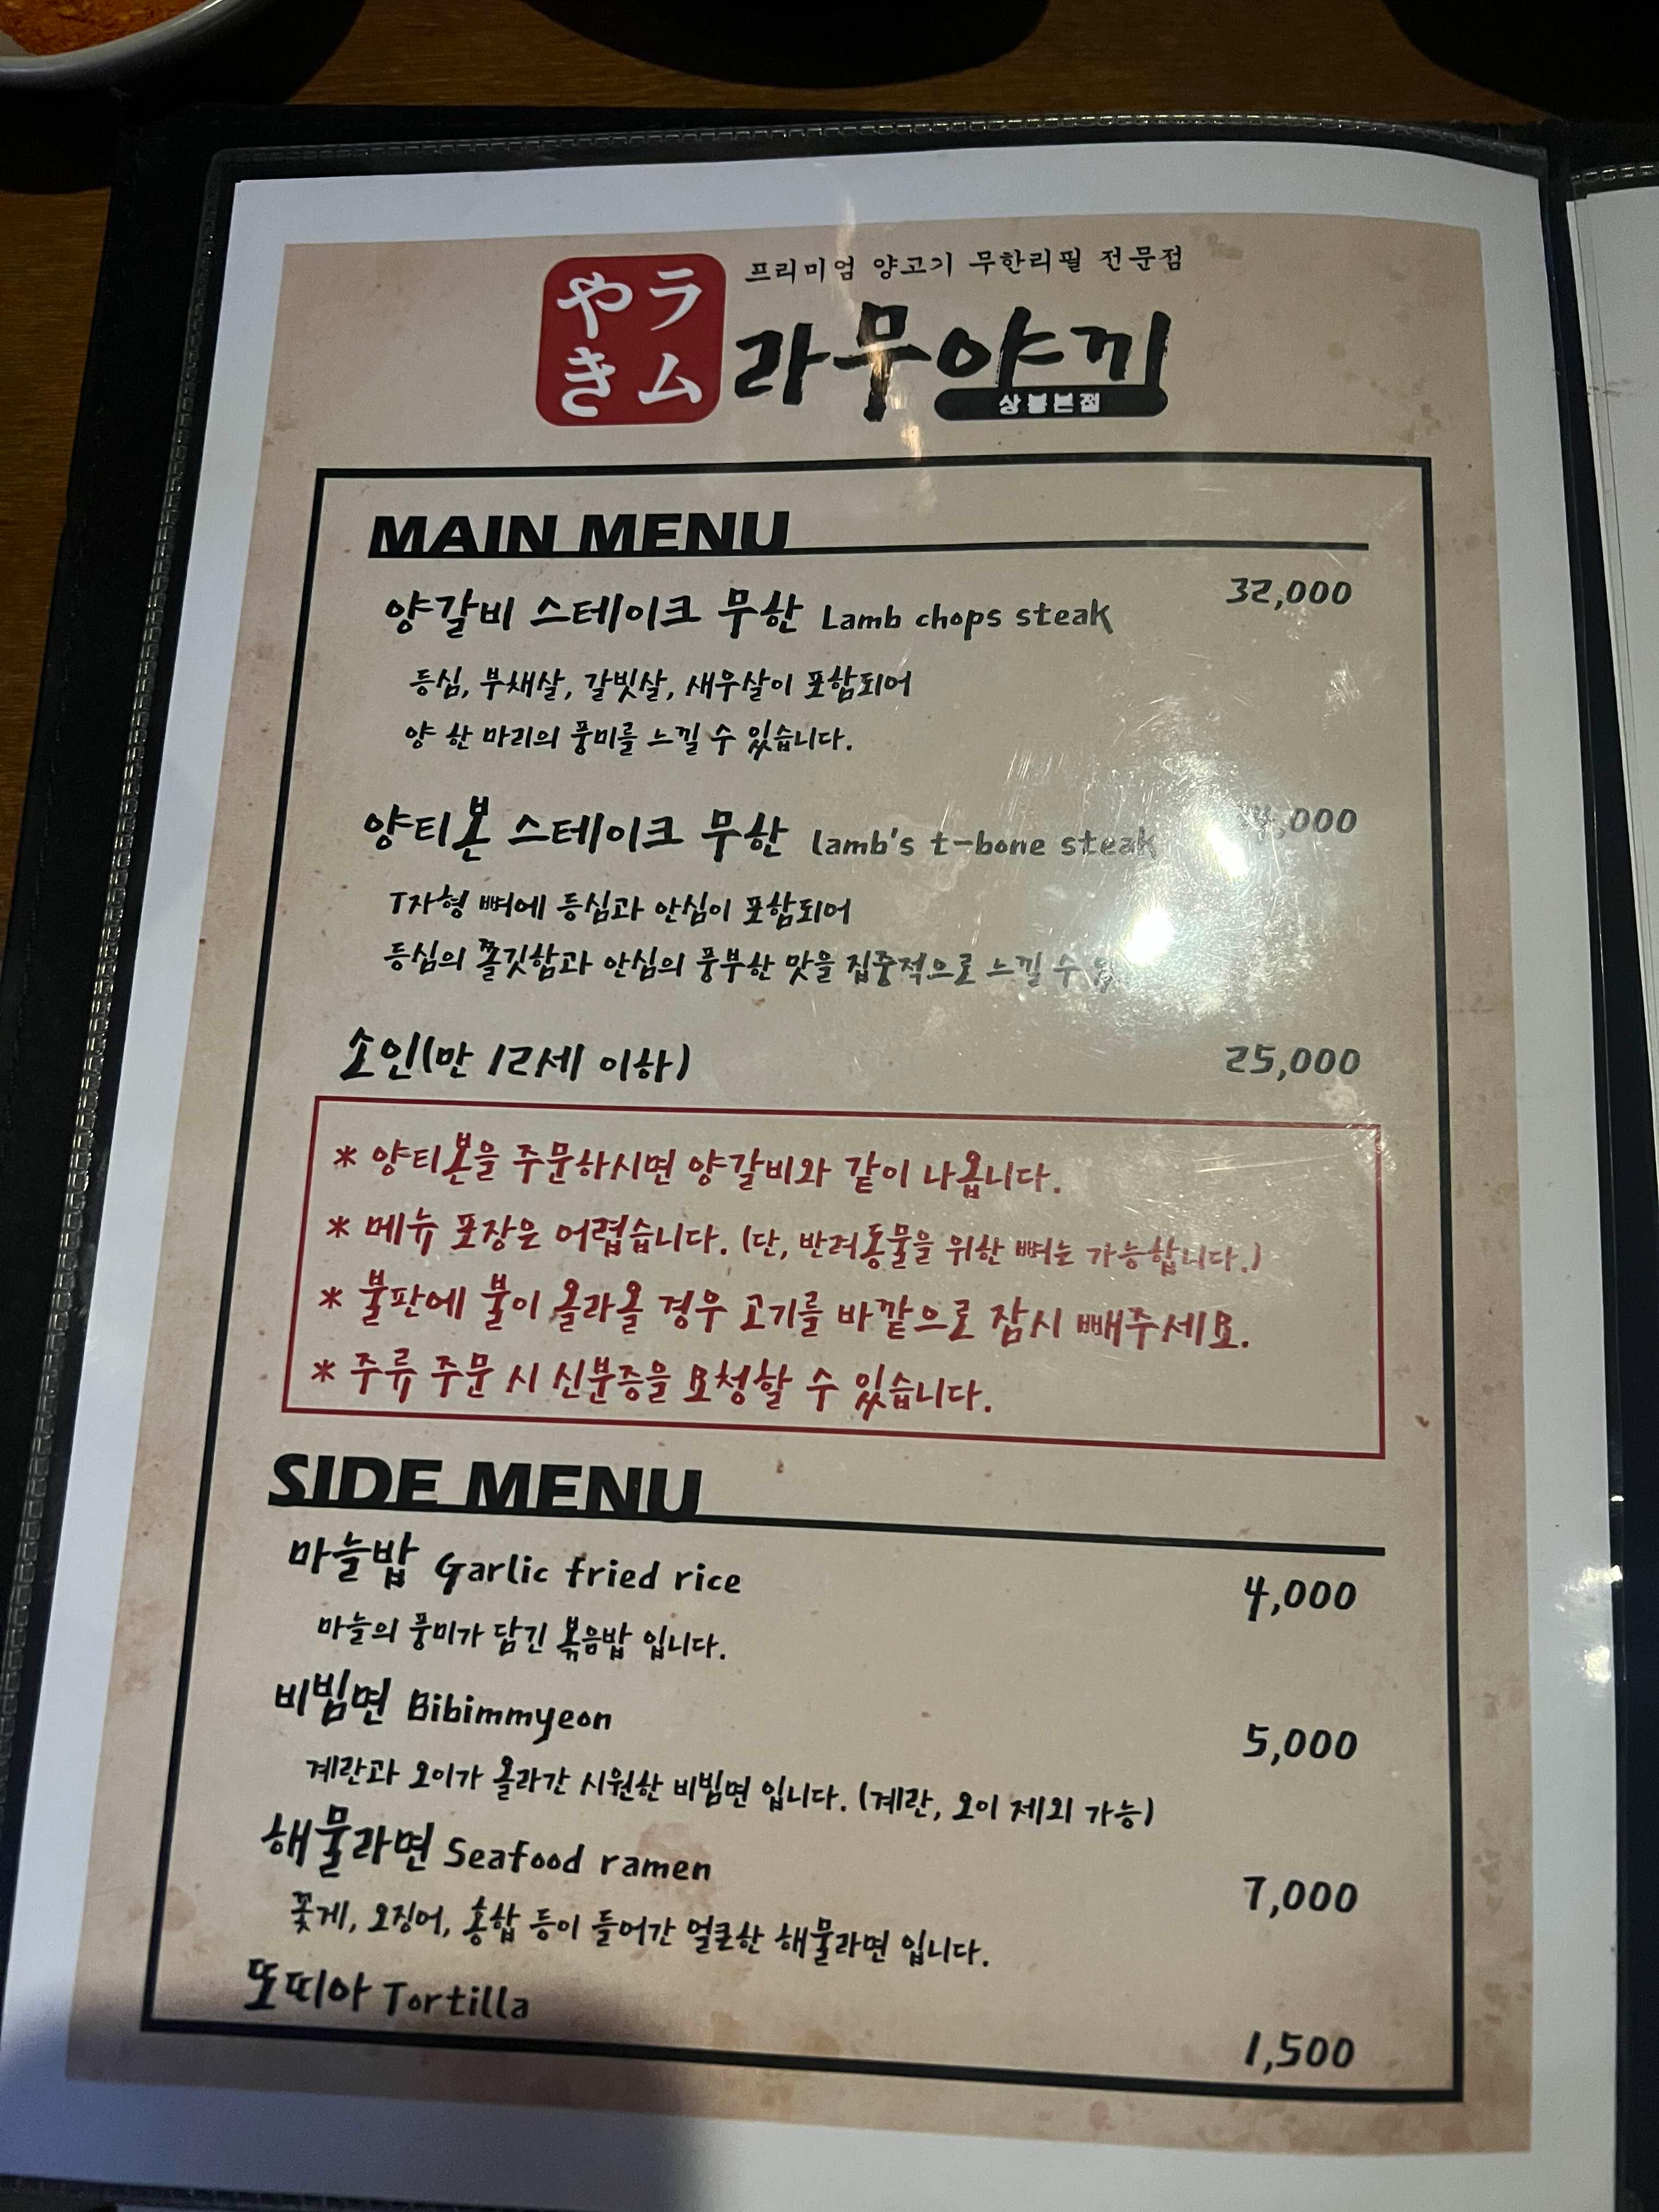 프리미엄 양고기 무한리필 전문점
やラ
きム
라무야끼
상봉본점
MAIN MENU
양갈비 스테이크 무한 Lamb chops steak 32,000
등심, 부채살, 갈빗살, 새우살이 포함되어
양 한 마리의 풍미를 느낄 수 있습니다.
양티본 스테이크 무한 lamb's t-bone steak
T자형 뼈에 등심과 안심이 포함되어
등심의 쫄깃함과 안심의 풍부한 맛을 집중적으로 느낄 수
소인(만 12세 이하) 25,000
* 양티본을 주문하시면 양갈비와 같이 나옵니다.
* 메뉴 포장은 어렵습니다. (단, 반려동물을 위한 뼈는 가능합니다.)
* 불판에 불이 올라올 경우 고기를 바깥으로 잠시 빼주세요.
* 주류 주문 시 신분증을 요청할 수 있습니다.
SIDE MENU
마늘밥 Garlic fried rice 4,000
마늘의 풍미가 담긴 볶음밥 입니다.
비빔면 Bibimmyeon 5,000
계란과 오이가 올라간 시원한 비빔면 입니다. (계란, 오이 제외 가능)
해물라면 Seafood ramen 7,000
꽃게, 오징어, 홍합 등이 들어간 얼큰한 해물라면 입니다.
또띠아 Tortilla 1,500